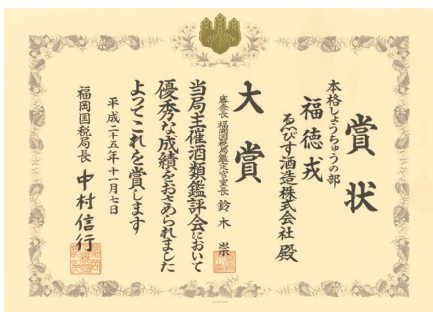 賞状
本格しょうちゅうの部
福徳戎
ゑびす酒造株式会社 殿
大賞
審査長 福岡国税局鑑定官室長 鈴木 崇
当局主催酒類鑑評会において
優秀な成績をおさめられました
よってこれを賞します
平成二十五年十一月七日
福岡国税局長 中村信行